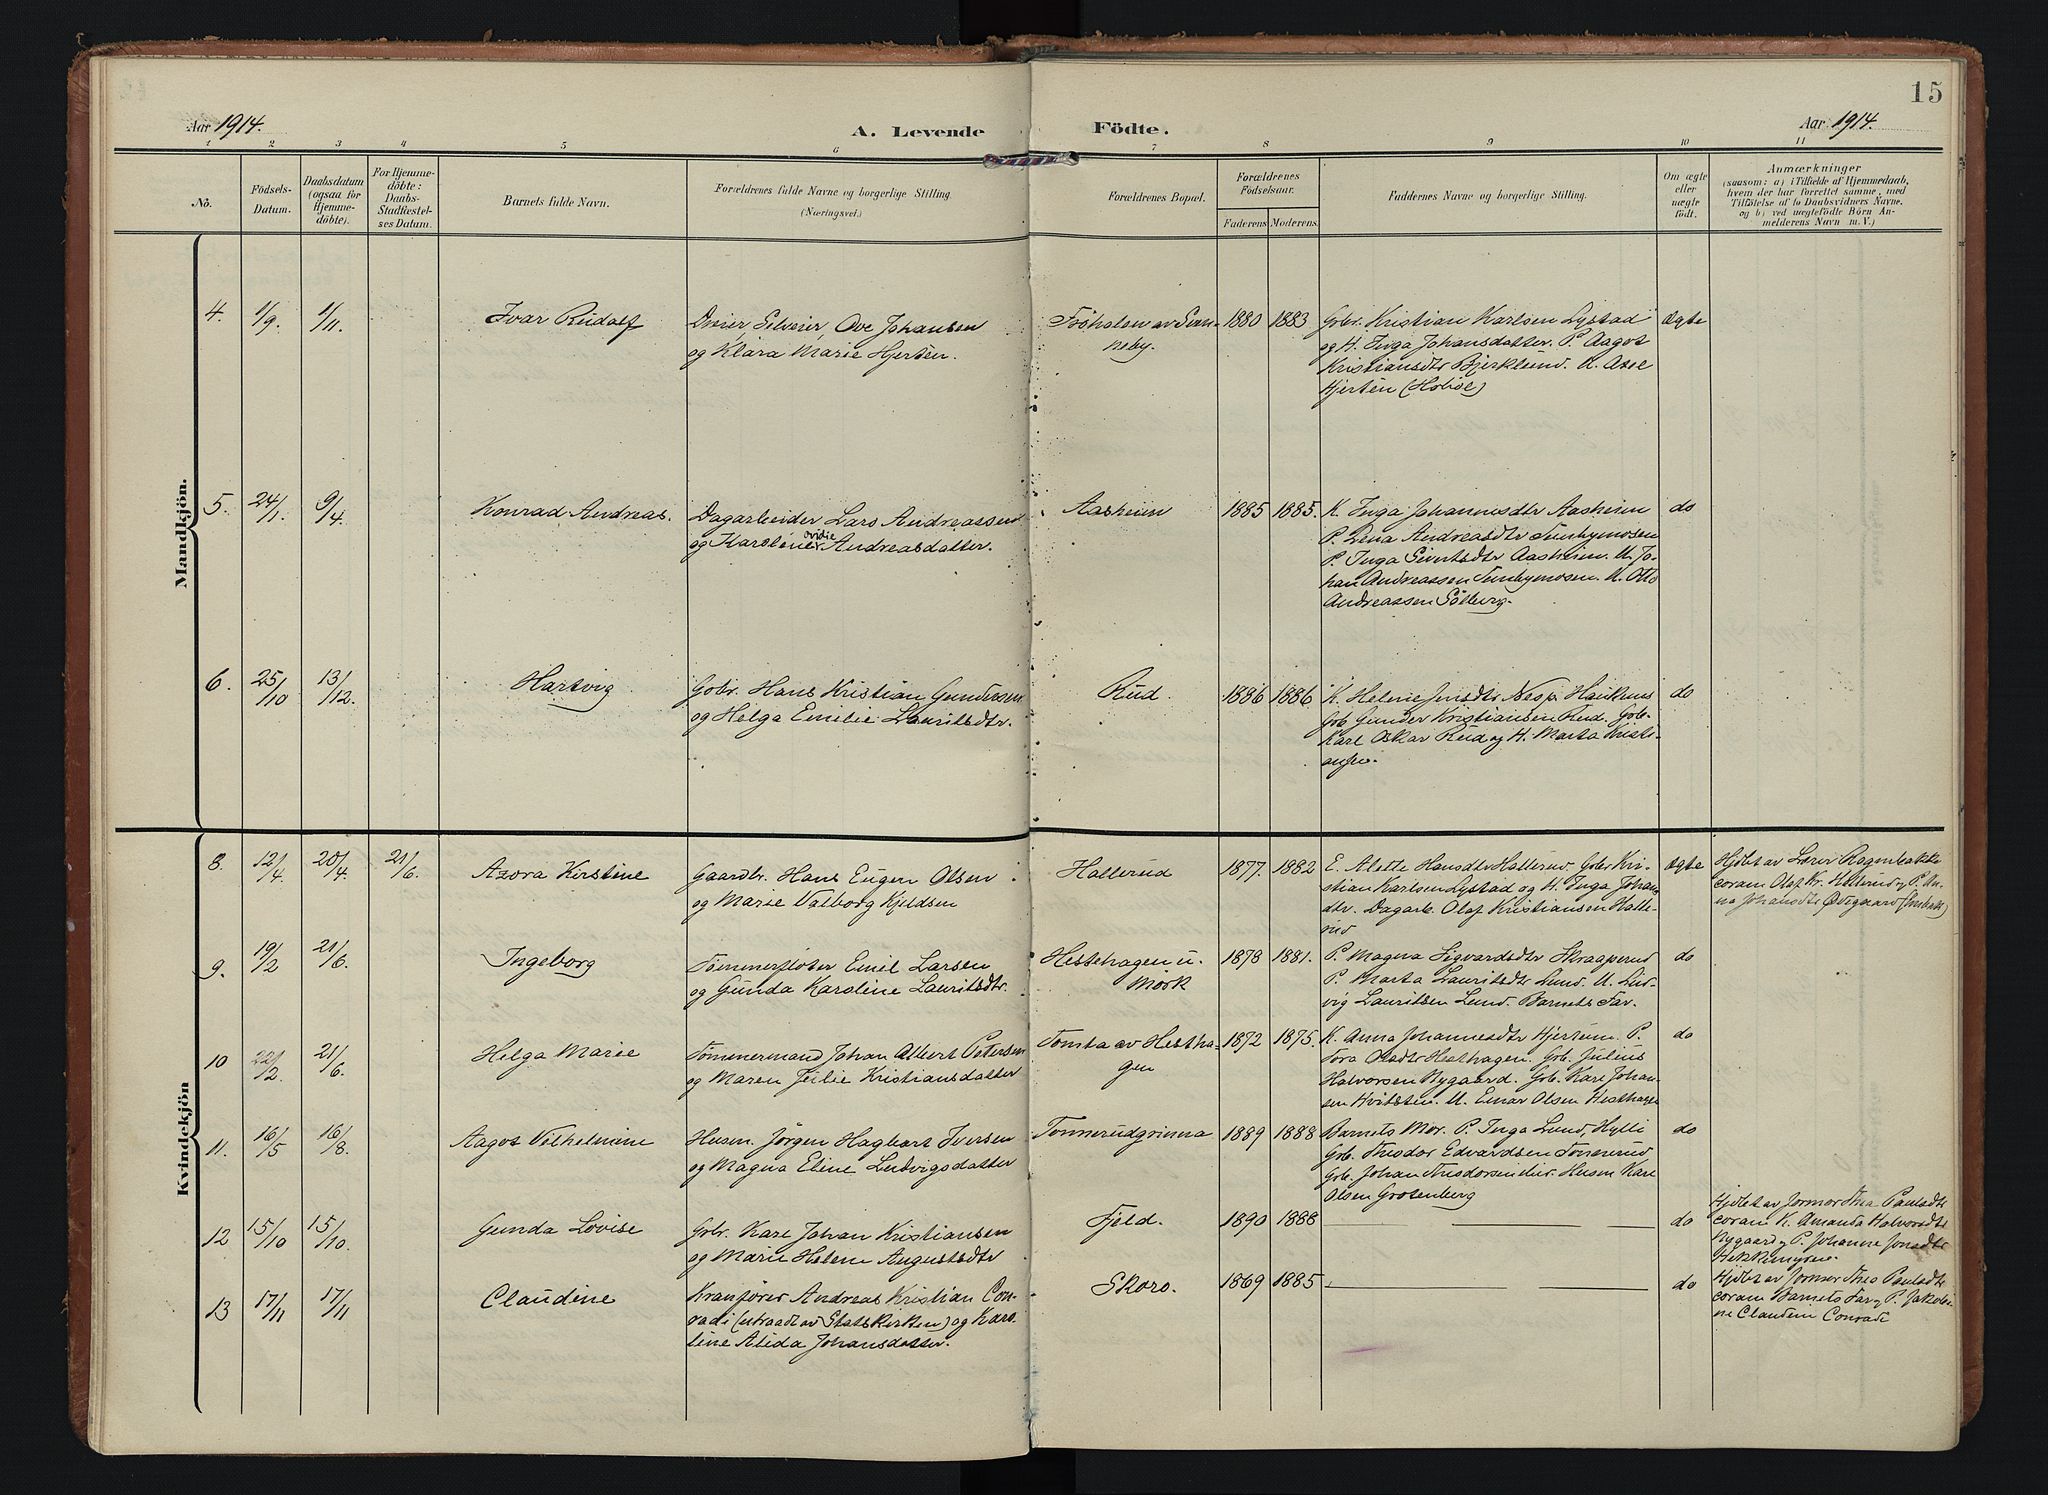 15
Aar 1914.
A. Levende Födte.
Aar 1914.
1 2 3 4 5 6 7 8 9 10 11
No.
Födsels-
Datum.
Daabsdatum
(ogsaa for
Hjemme-
döbte).
For Hjemme-
döbte:
Daabs-
Stadfæstel-
ses Datum.
Barnets fulde Navn.
Forældrenes fulde Navne og borgerlige Stilling
(Næringsvei.)
Forældrenes Bopæl.
Forældrenes
Födselsaar.
Faderens Moderens
Faddernes Navne og borgerlige Stilling.
Om ægte
eller
uægte
født.
Anmærkninger
(saasom: a) i Tilfælde af Hjemmedaab,
hvem der har forrettet samme, med
Tilföielse af to Daabsvidners Navne,
og b) ved uægtefödte Börn An-
melderens Navn m. V.)
Mandkjön.
4. 1/9. 1/11. Ivar Rudolf
Ove Johansen
og Klara Marie Hjertén.
1880 1883
Gbr. Kristian Karlsen Lystad
og H. Inga Johansdatter. P. Aagot
Kristiansdtr Bjerklund. U. Axel
Hjertén (Hobøl)
Ægte
5. 24/1. 9/4. Konrad Andreas.
Dagarbeider Lars Andreassen
og Karoline Ovidie Andreasdatter.
Aasheim
1885 1885.
K. Inga Johannesdtr Aasheim
P. Lena Andreasdtr
P. Inga Aasheim. U. Jo-
han Andreassen U. Otto
Andreassen Solberg.
do
6. 25/10 13/12. Hartvig
Gbr. Hans Kristian Gundersen
og Helga Emilie Lauritsdtr.
Rud.
1886 1886
K. Helene Jensdtr
Gbr Gunder Kristiansen Rud. Gbr.
Karl Oskar Rud og H. Marta Kristi-
ansen.
do
Kvindekjön
8. 12/4. 20/4 21/6. Azora Kirstine
Gaardbr. Hans Eugen Olsen
og Marie Valborg Kjeldsen
Hallerud
1877. 1882
E. Alette Hansdtr Hallerud. Gbr Kri-
stian Karlsen Lystad og H. Inga Johans
dtr. Dagarb. Olaf Kristiansen Halle-
rud
Ægte
Hjdbt av Lærer
coram Olaf Kr. Hallerud og P. An-
na Johansdtr
9. 19/2 21/6. Ingeborg
Tömmerflöter Emil Larsen
og Gunda Karoline Lauritsdtr.
Hestehagen u.
Mørk
1878 1881.
P. Magna Sigvardsdtr Skraaperud
P. Marta Lauritsdtr Lund. U. Lud-
vig Lauritsen Lund. Barnets Far.
do
10 22/2. 21/6. Helga Marie
Tömmermand Johan Albert Petersen
og Maren Jeilie Kristiansdatter
Tomta av Hestha-
gen
1872 1875.
K. Anna Johannesdtr Hjerteim. P.
Tora Olsdtr Hesthagen. Gbr. Julius
Halvorsen Nygaard. Gbr. Karl Johan-
sen Hvitsten. U. Einar Olsen Hesthagen
do
11. 16/5 16/8. Aagot Vilhelmine
Husm. Jörgen Hagbart Iversen
og Magna Eline Ludvigsdatter
Tonnerudgrinna
1889 1888
Barnets Mor. P. Inga Lund, Hylli
Gbr. Theodor Edvardsen Tonnerud
Gbr. Johan Husm Karl
Olsen Grotenberg
do
12 15/10 15/10. Gunda Lovise
Gbr. Karl Johan Kristiansen
og Marie Helene Augustsdtr
Fjeld.
1890 1888
do
Hjdbt av Jormor Thea Paulsdtr
coram K. Amanda Halvorsdtr
Nygaard og P. Johanne Jensdtr
13 17/11 17/11 Claudine
Kranförer Andreas Kristian Con-
radi (utraadt av Statskirken) og Karo
line Alida Johansdatter.
Skoro.
1869 1885
do
Hjdbt av Jormor Thea Paulsdtr
coram Barnets Far og P. Jakobi-
ne Claudin Conradi